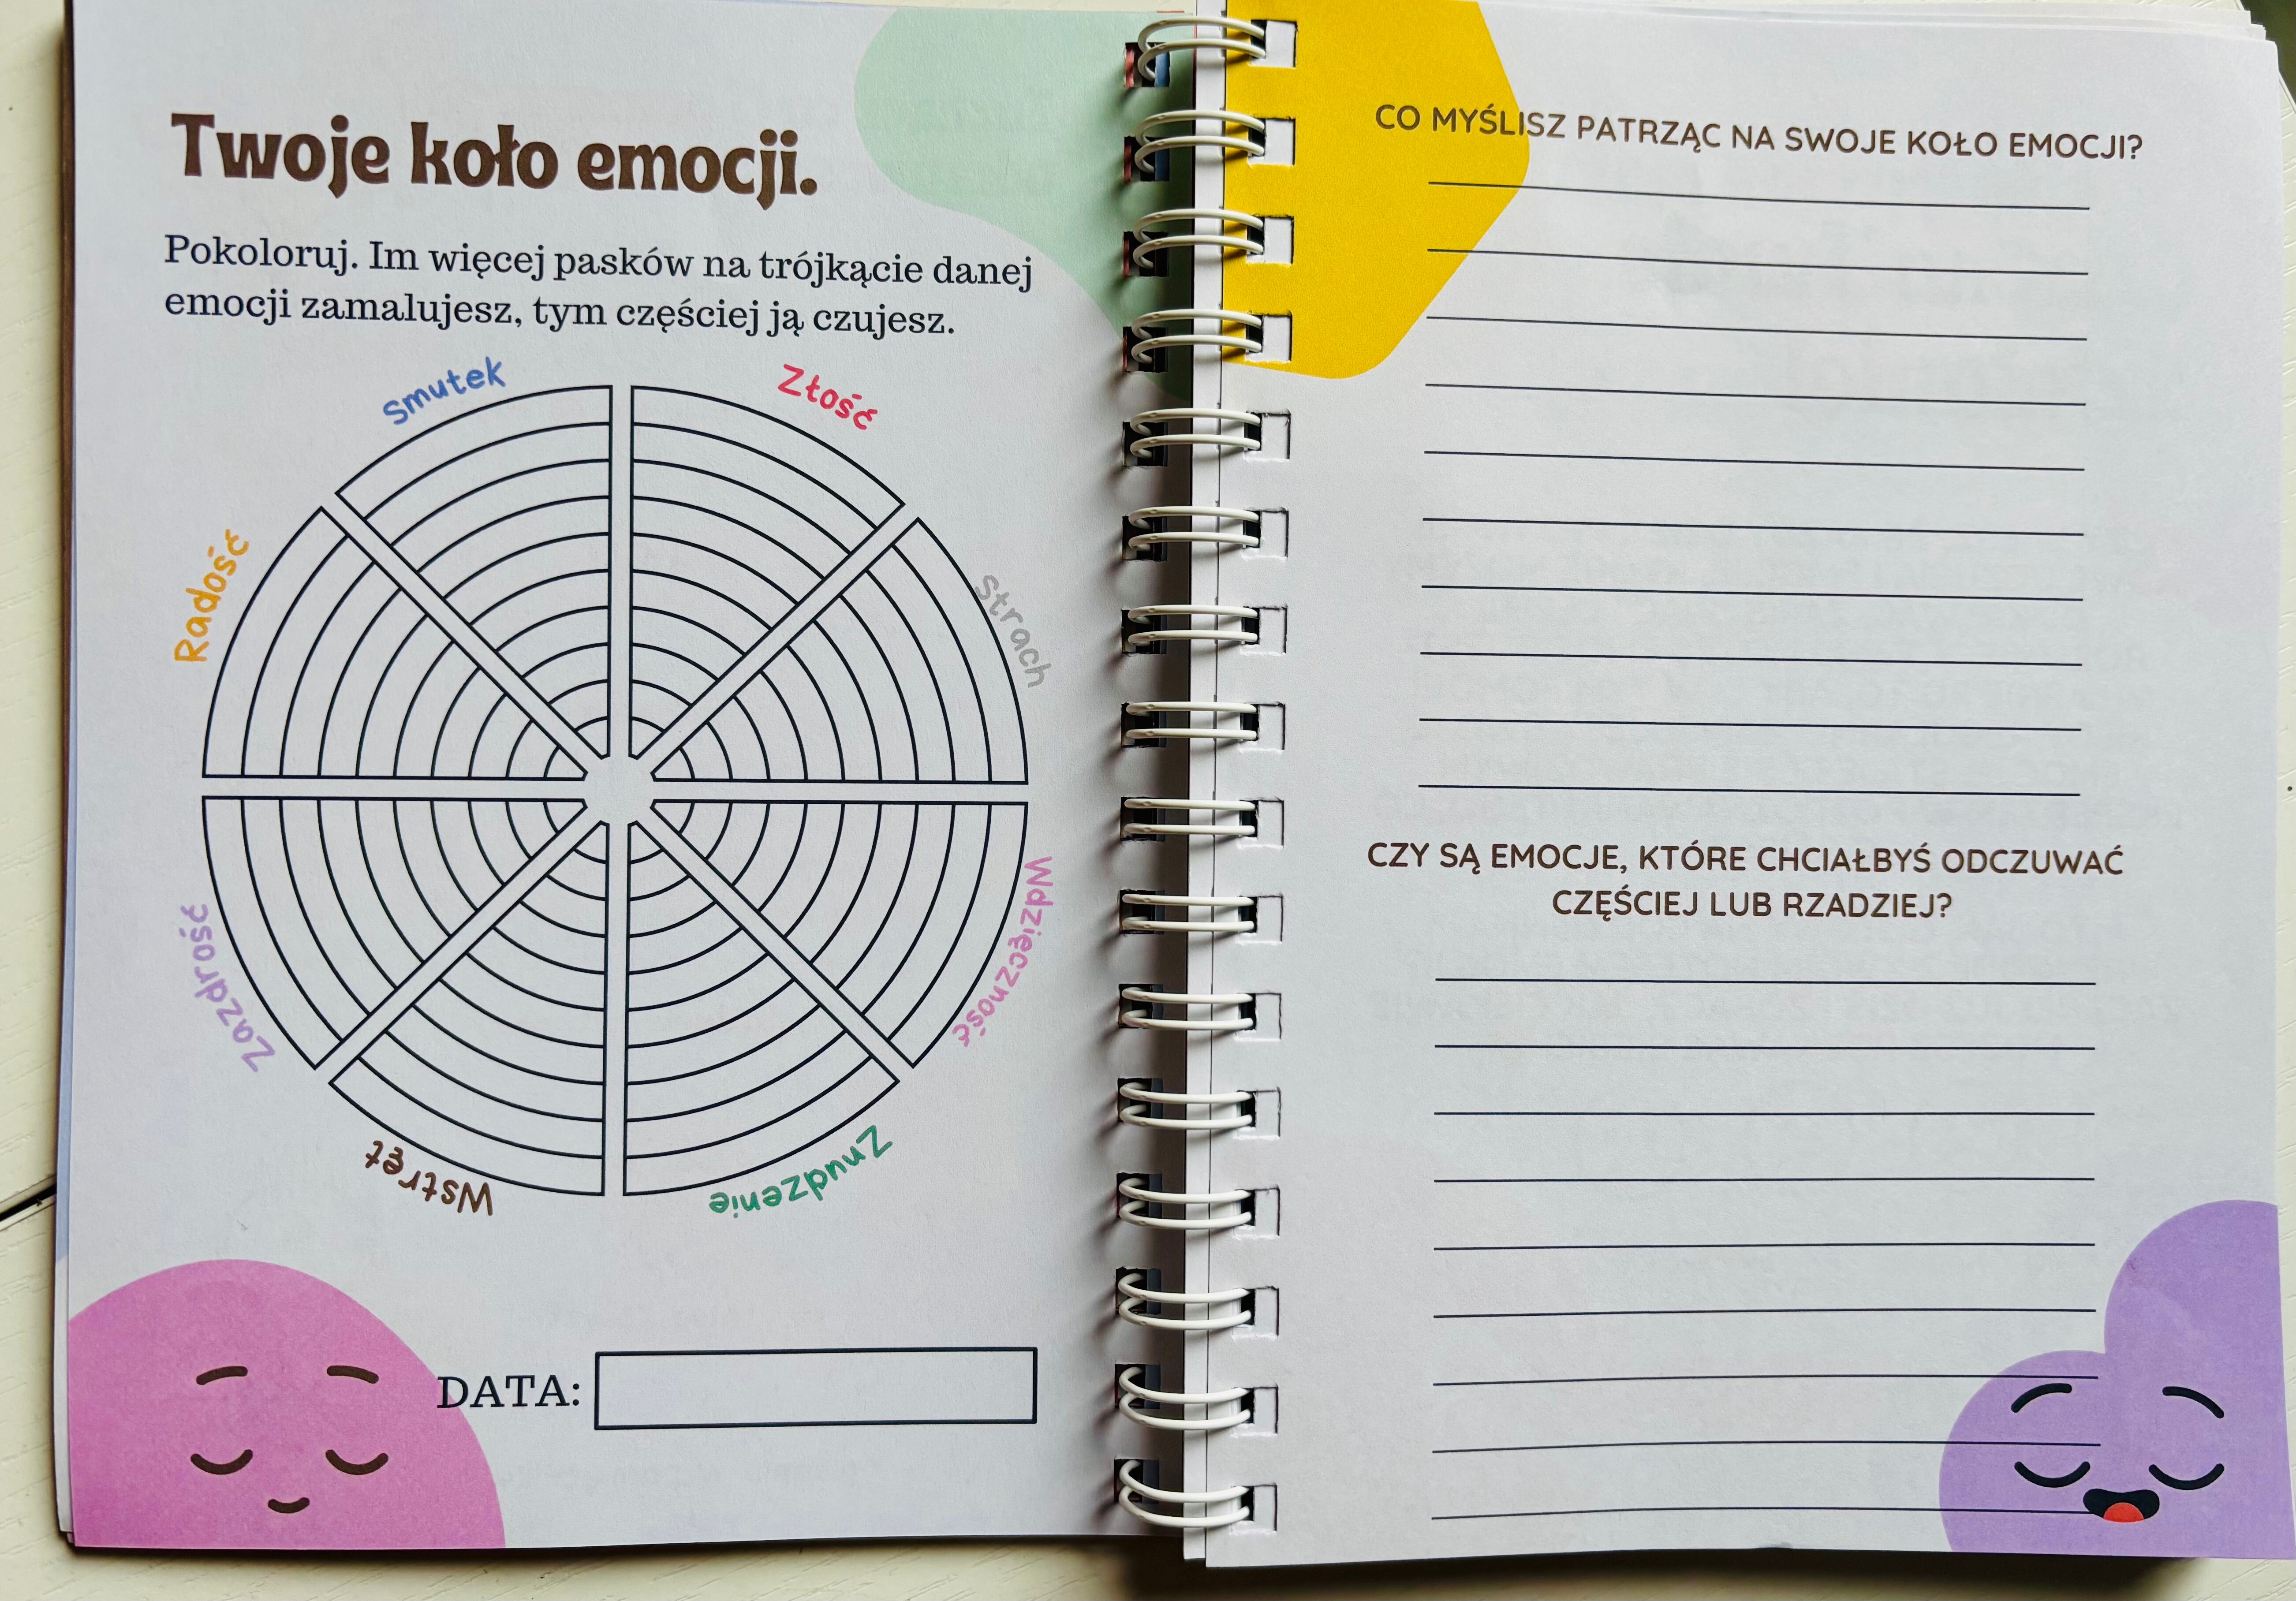 Twoje koło emocji.
Pokoloruj. Im więcej pasków na trójkącie danej
emocji zamalujesz, tym częściej ją czujesz.
Smutek
Złość
Radość
Strach
Zazdrość
Wdzięczność
Wstręt
Znudzenie
DATA:
CO MYŚLISZ PATRZĄC NA SWOJE KOŁO EMOCJI?
CZY SĄ EMOCJE, KTÓRE CHCIAŁBYŚ ODCZUWAĆ
CZĘŚCIEJ LUB RZADZIEJ?